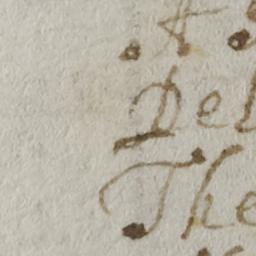 A
Del
The